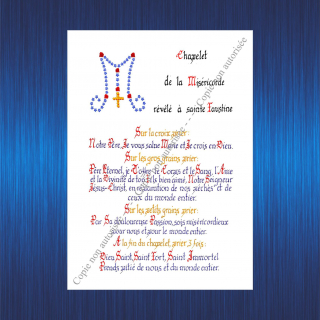 Chapelet
de la Miséricorde
révélé à sainte Faustine
Sur la croix, prier :
Notre Père, Je vous salue Marie et Je crois en Dieu.
Sur les gros grains, prier :
Père Eternel, je T'offre le Corps et le Sang, l'Ame
et la Divinité de ton Fils bien aimé, Notre Seigneur
Jésus-Christ, en réparation de nos péchés et de
ceux du monde entier.
Sur les petits grains, prier :
Par Sa douloureuse Passion, sois miséricordieux
pour nous et pour le monde entier.
A la fin du chapelet, prier 3 fois :
Dieu Saint, Saint Fort, Saint Immortel
Prends pitié de nous et du monde entier.
Copie non autorisée - - - Copie non autorisée - - - Copie non autorisée